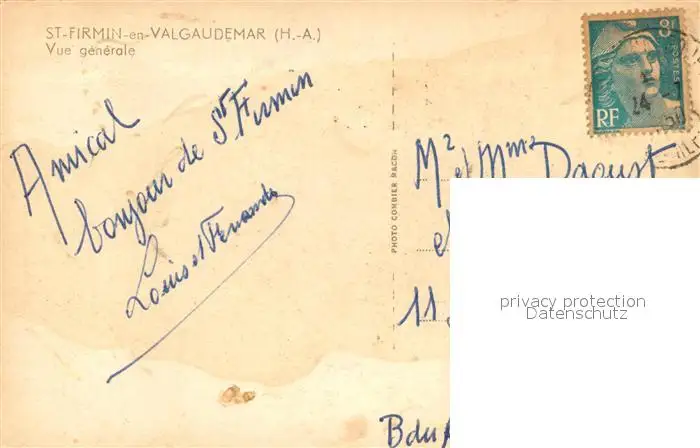 ST-FIRMIN-en-VALGAUDEMAR (H.-A.)
Vue générale
Amical
bonjour de St Firmin
Louis et Fernande
PHOTO COMBIER MACON
8F
POSTES
RF
24
Mr et Mme Daoust
et
11
privacy protection
Datenschutz